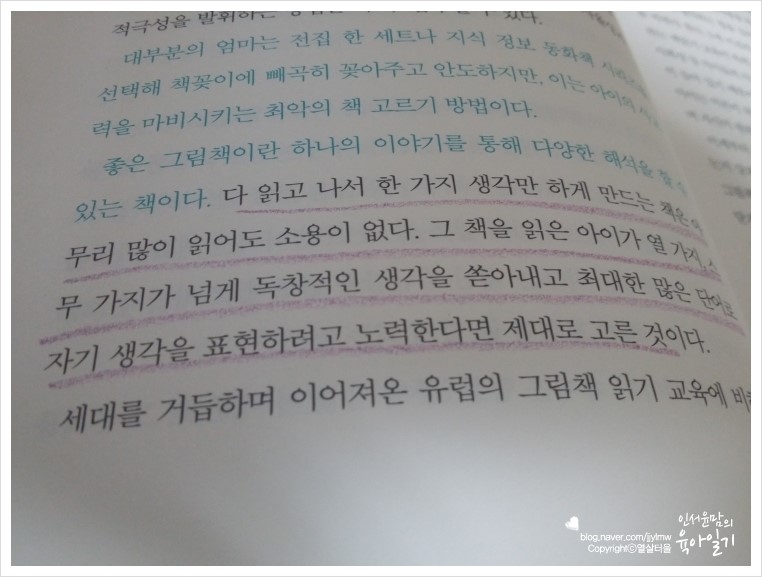 적극성을 발휘하는
대부분의 엄마는 전집 한 세트나 지식 정보 동화책
선택해 책꽂이에 빼곡히 꽂아주고 안도하지만, 이는 아이의
력을 마비시키는 최악의 책 고르기 방법이다.
좋은 그림책이란 하나의 이야기를 통해 다양한 해석을 할 수
있는 책이다. 다 읽고 나서 한 가지 생각만 하게 만드는 책은 아
무리 많이 읽어도 소용이 없다. 그 책을 읽은 아이가 열 가지, 스
무 가지가 넘게 독창적인 생각을 쏟아내고 최대한 많은 단어로
자기 생각을 표현하려고 노력한다면 제대로 고른 것이다.
세대를 거듭하며 이어져온 유럽의 그림책 읽기 교육에
인서윤맘의
육아일기
blog.naver.com/jjylmw
Copyrightⓒ열살터울